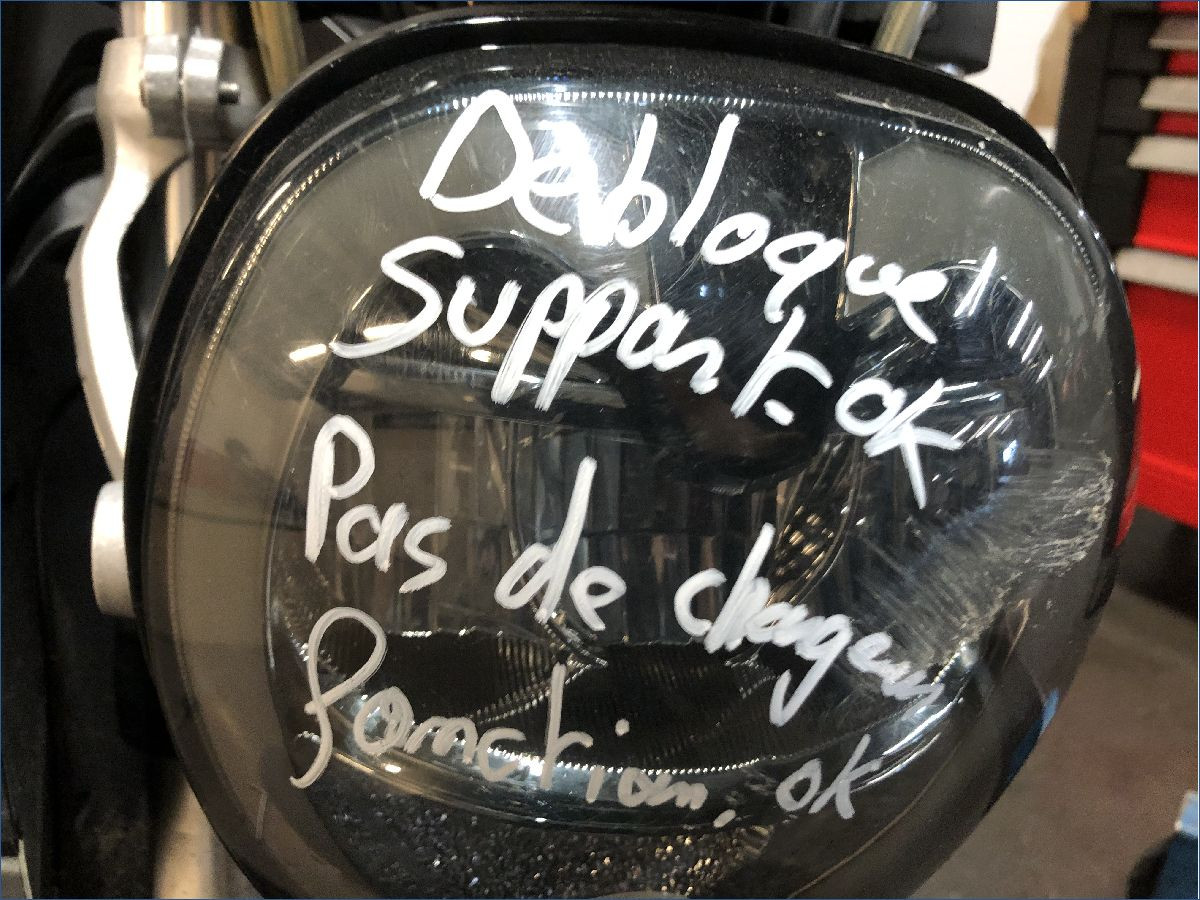 Debloqué
Support. ok
Pas de chargeur
fonction. ok